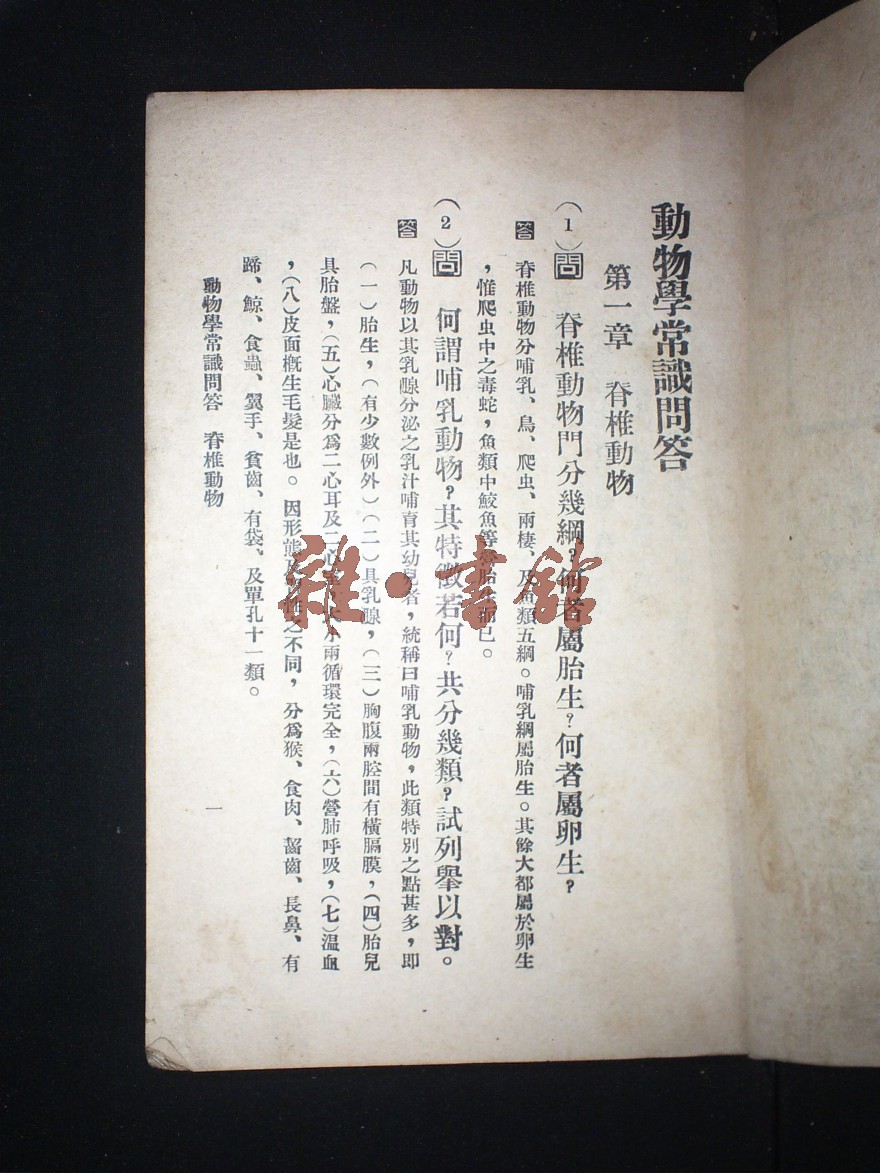 動物學常識問答
第一章　脊椎動物
（1）問　脊椎動物門分幾綱？何者屬胎生？何者屬卵生？
答　脊椎動物分哺乳、鳥、爬虫、兩棲、及魚類五綱。哺乳綱屬胎生。其餘大都屬於卵生
，惟爬虫中之毒蛇，魚類中鮫魚等胎已。
（2）問　何謂哺乳動物？其特徵若何？共分幾類？試列舉以對。
答　凡動物以其乳腺分泌之乳汁哺育其幼兒者，統稱曰哺乳動物，此類特別之點甚多，即
（一）胎生，（有少數例外）（二）具乳腺，（三）胸腹兩腔間有橫膈膜，（四）胎兒
具胎盤，（五）心臟分爲二心耳及二心兩循環完全，（六）營肺呼吸，（七）溫血
，（八）皮面概生毛髮是也。因形態及性之不同，分爲猴、食肉、齧齒、長鼻、有
蹄、鯨、食蟲、翼手、貧齒、有袋、及單孔十一類。
動物學常識問答　脊椎動物
一
雜·書館